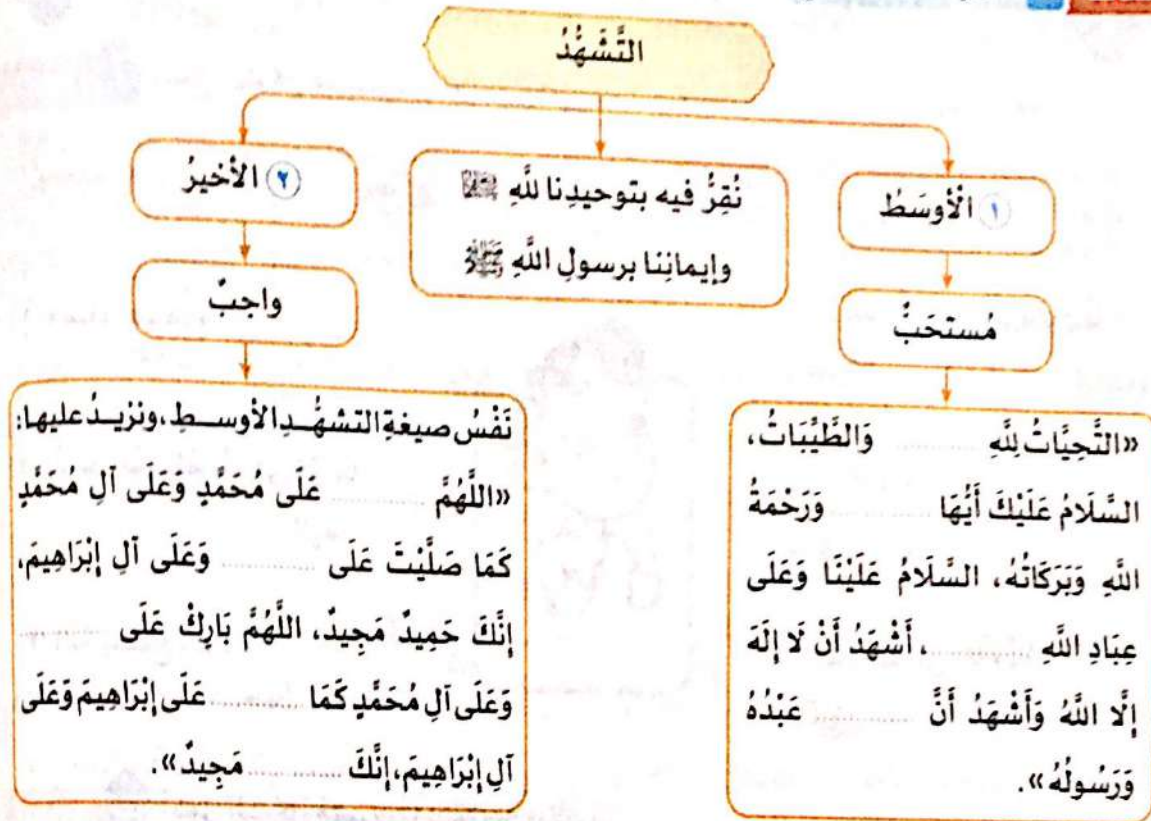 التَّشَهُّدُ
١ الْأَوسَطُ
مُستحَبٌّ
«التَّحِيَّاتُ لِلَّهِ ............ وَالطَّيِّبَاتُ،
السَّلَامُ عَلَيْكَ أَيُّهَا ............ وَرَحْمَةُ
اللَّهِ وَبَرَكَاتُهُ، السَّلَامُ عَلَيْنَا وَعَلَى
عِبَادِ اللَّهِ ............، أَشْهَدُ أَنْ لَا إِلَهَ
إِلَّا اللَّهُ وَأَشْهَدُ أَنَّ ............ عَبْدُهُ
وَرَسُولُهُ».
نُقِرُّ فيه بتوحيدِنا للَّهِ
وإيمانِنا برسولِ اللَّهِ ﷺ
٢ الأخيرُ
واجبٌ
نَفْسُ صيغةِ التشهُّدِ الأوسطِ، ونزيدُ عليها:
«اللَّهُمَّ ............ عَلَى مُحَمَّدٍ وَعَلَى آلِ مُحَمَّدٍ
كَمَا صَلَّيْتَ عَلَى ............ وَعَلَى آلِ إِبْرَاهِيمَ،
إِنَّكَ حَمِيدٌ مَجِيدٌ، اللَّهُمَّ بَارِكْ عَلَى ............
وَعَلَى آلِ مُحَمَّدٍ كَمَا ............ عَلَى إِبْرَاهِيمَ وَعَلَى
آلِ إِبْرَاهِيمَ، إِنَّكَ ............ مَجِيدٌ».